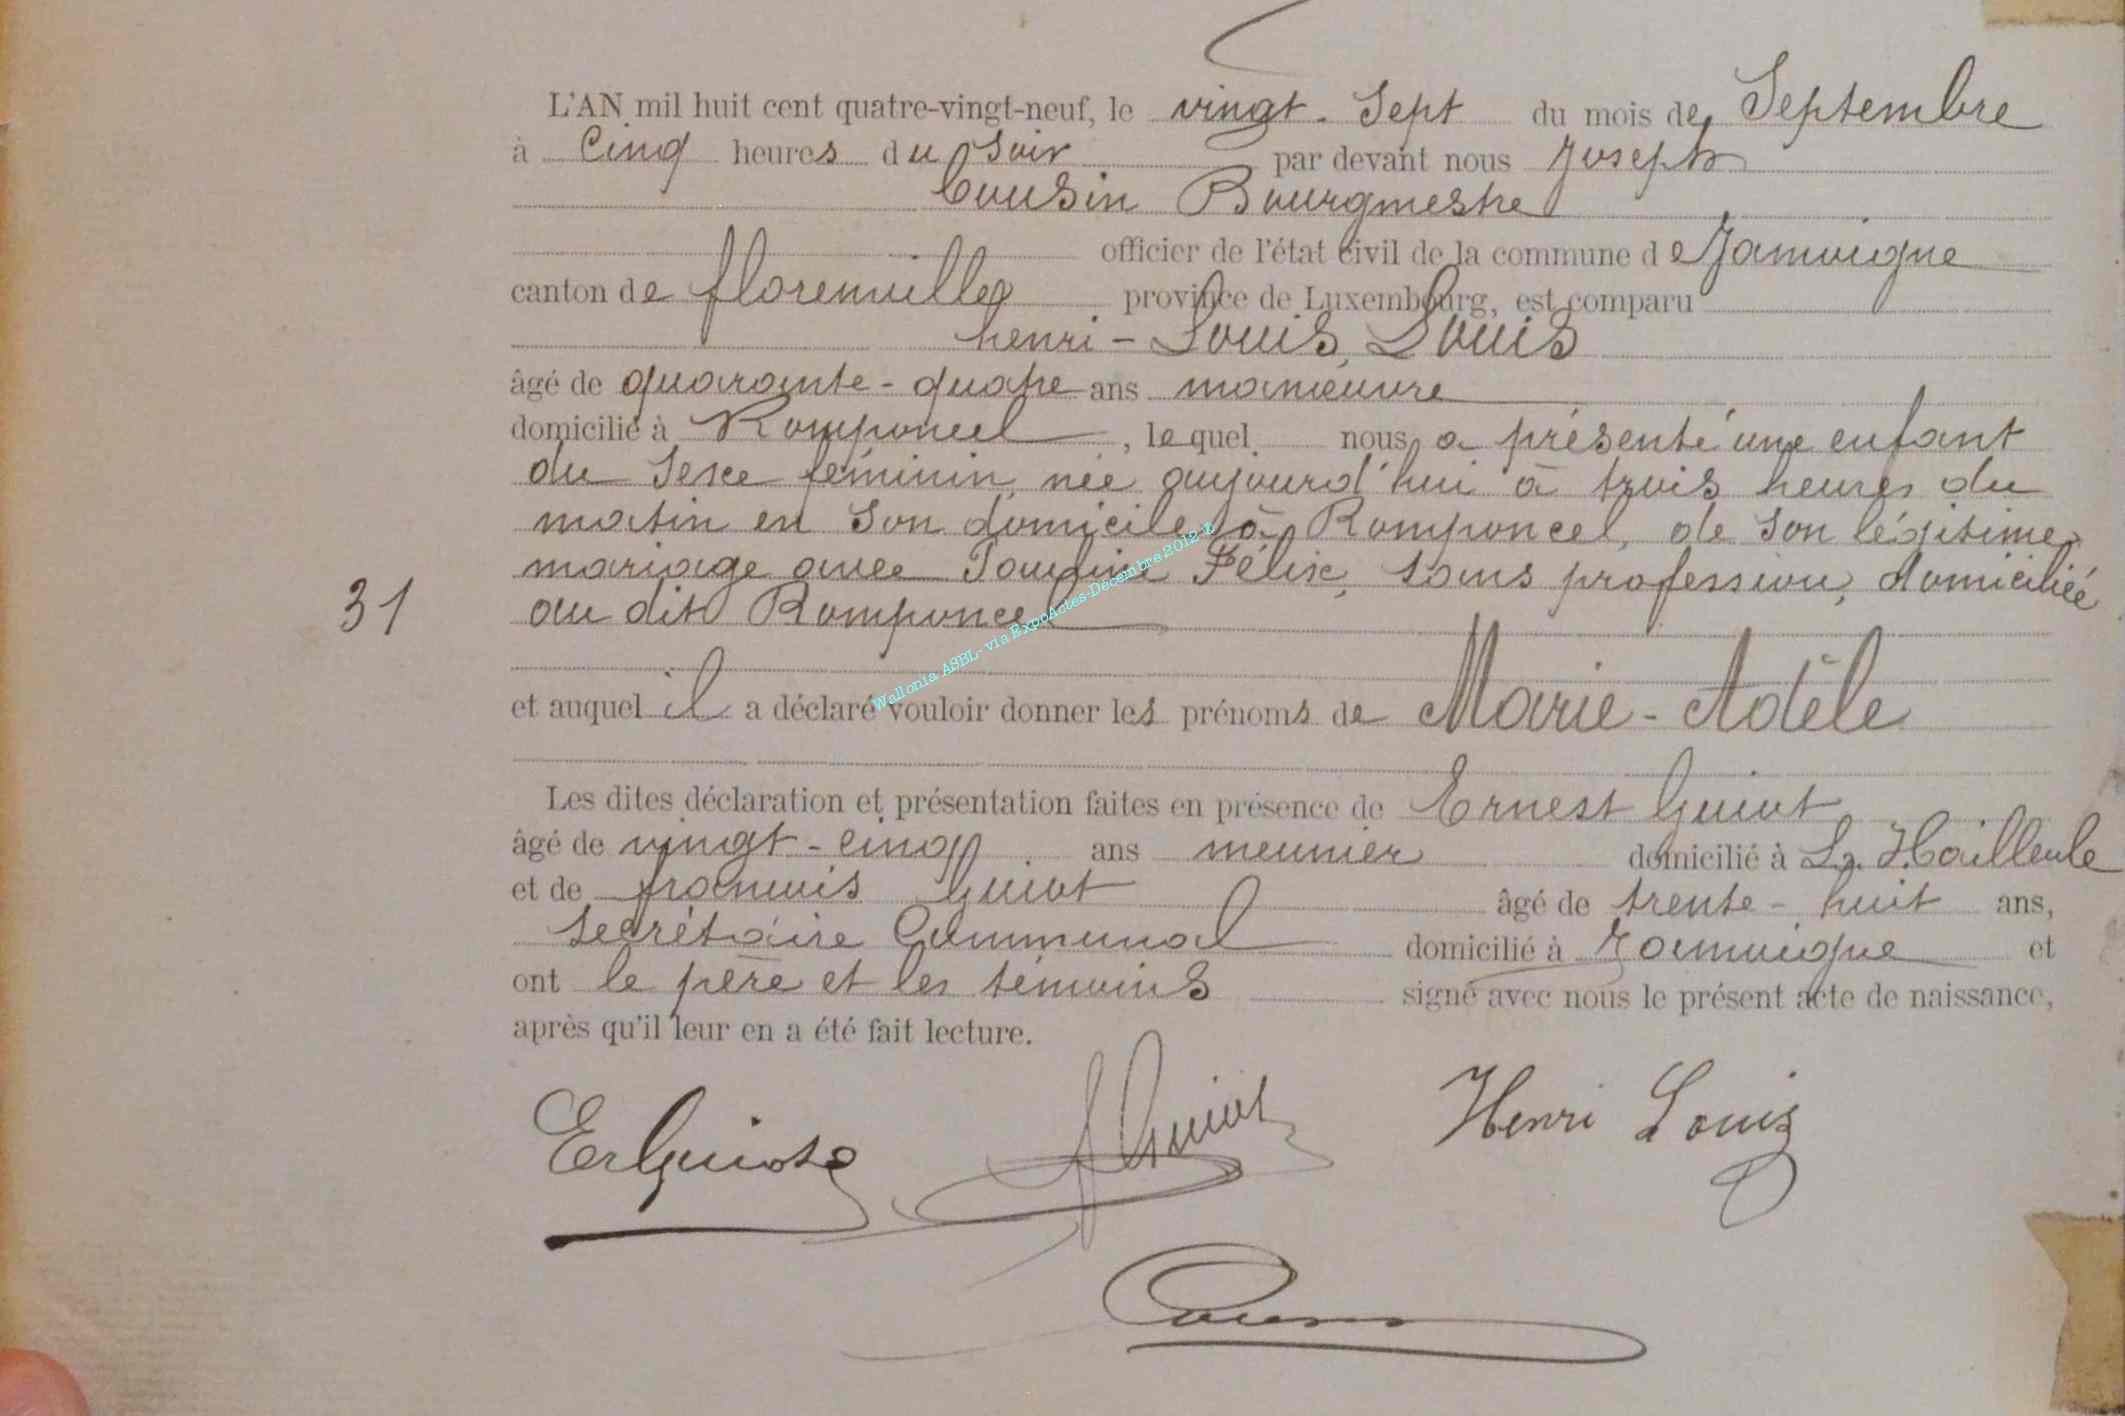 L'AN mil huit cent quatre-vingt-neuf, le vingt-Sept du mois de Septembre
à Cinq heures du Soir par devant nous Joseph
Cousin Bourgmestre
officier de l'état civil de la commune de Jamoigne
canton de florenville province de Luxembourg, est comparu
henri-Louis, Louis
âgé de quarante-quatre ans manœuvre
domicilié à Romponcel, le quel nous a présenté une enfant
du Sexe féminin, née aujourd'hui à trois heures du
matin en Son domicile à Romponcel, de Son légitime
mariage avec Félix, Sans profession, domiciliée
31 au dit Romponcel
et auquel il a déclaré vouloir donner les prénoms de Marie-Adèle
Les dites déclaration et présentation faites en présence de Ernest Guiot
âgé de vingt-cinq ans meunier domicilié à
et de françois Guiot âgé de trente-huit ans,
Secrétaire Communal domicilié à Jamoigne et
ont le père et les témoins signé avec nous le présent acte de naissance,
après qu'il leur en a été fait lecture.
Er Guiot f Guiot Henri Louis
Cousin
Wallonia ASBL- via ExpoActes-Décembre 2012-